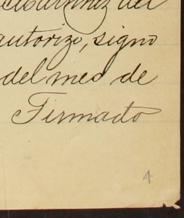 del
autorizo, signo
del mes de
Firmado
4